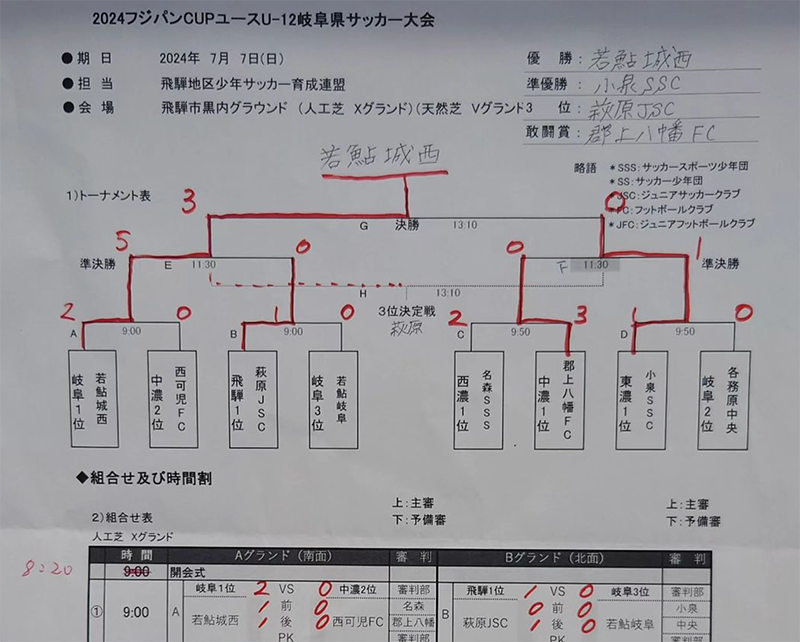 2024フジパンCUPユースU-12岐阜県サッカー大会
●期　日　2024年 7月 7日(日)
●担　当　飛騨地区少年サッカー育成連盟
●会　場　飛騨市黒内グラウンド （人工芝 Xグランド）（天然芝 Vグランド
優　勝：若鮎城西
準優勝：小泉SSC
3　位：萩原JSC
敢闘賞：郡上八幡FC
若鮎城西
略語 ＊SSS：サッカースポーツ少年団
＊SS：サッカー少年団
＊JSC：ジュニアサッカークラブ
＊FC：フットボールクラブ
＊JFC：ジュニアフットボールクラブ
1)トーナメント表
3 0
G 決勝 13:10
5 0 0 1
準決勝 E 11:30 F 11:30 準決勝
H 13:10
3位決定戦
萩原
2 0 1 0 2 3 1 0
A 9:00 B 9:00 C 9:50 D 9:50
岐阜1位 若鮎城西
中濃2位 西可児FC
飛騨1位 萩原JSC
岐阜3位 若鮎岐阜
西濃1位 名森SSS
中濃1位 郡上八幡FC
東濃1位 小泉SSC
岐阜2位 各務原中央
◆組合せ及び時間割
2)組合せ表
上：主審
下：予備審
上：主審
下：予備審
人工芝 Xグランド
時 間 Aグランド（南面） 審 判 Bグランド（北面） 審 判
8:20 9:00 開会式
① 9:00 A 岐阜1位 2 VS 0 中濃2位 審判部 B 飛騨1位 1 VS 0 岐阜3位 審判部
若鮎城西 1 前 0 西可児FC 名森 萩原JSC 0 前 0 若鮎岐阜 小泉
1 後 0 郡上八幡 1 後 0 中央
PK 審判部 PK 審判部